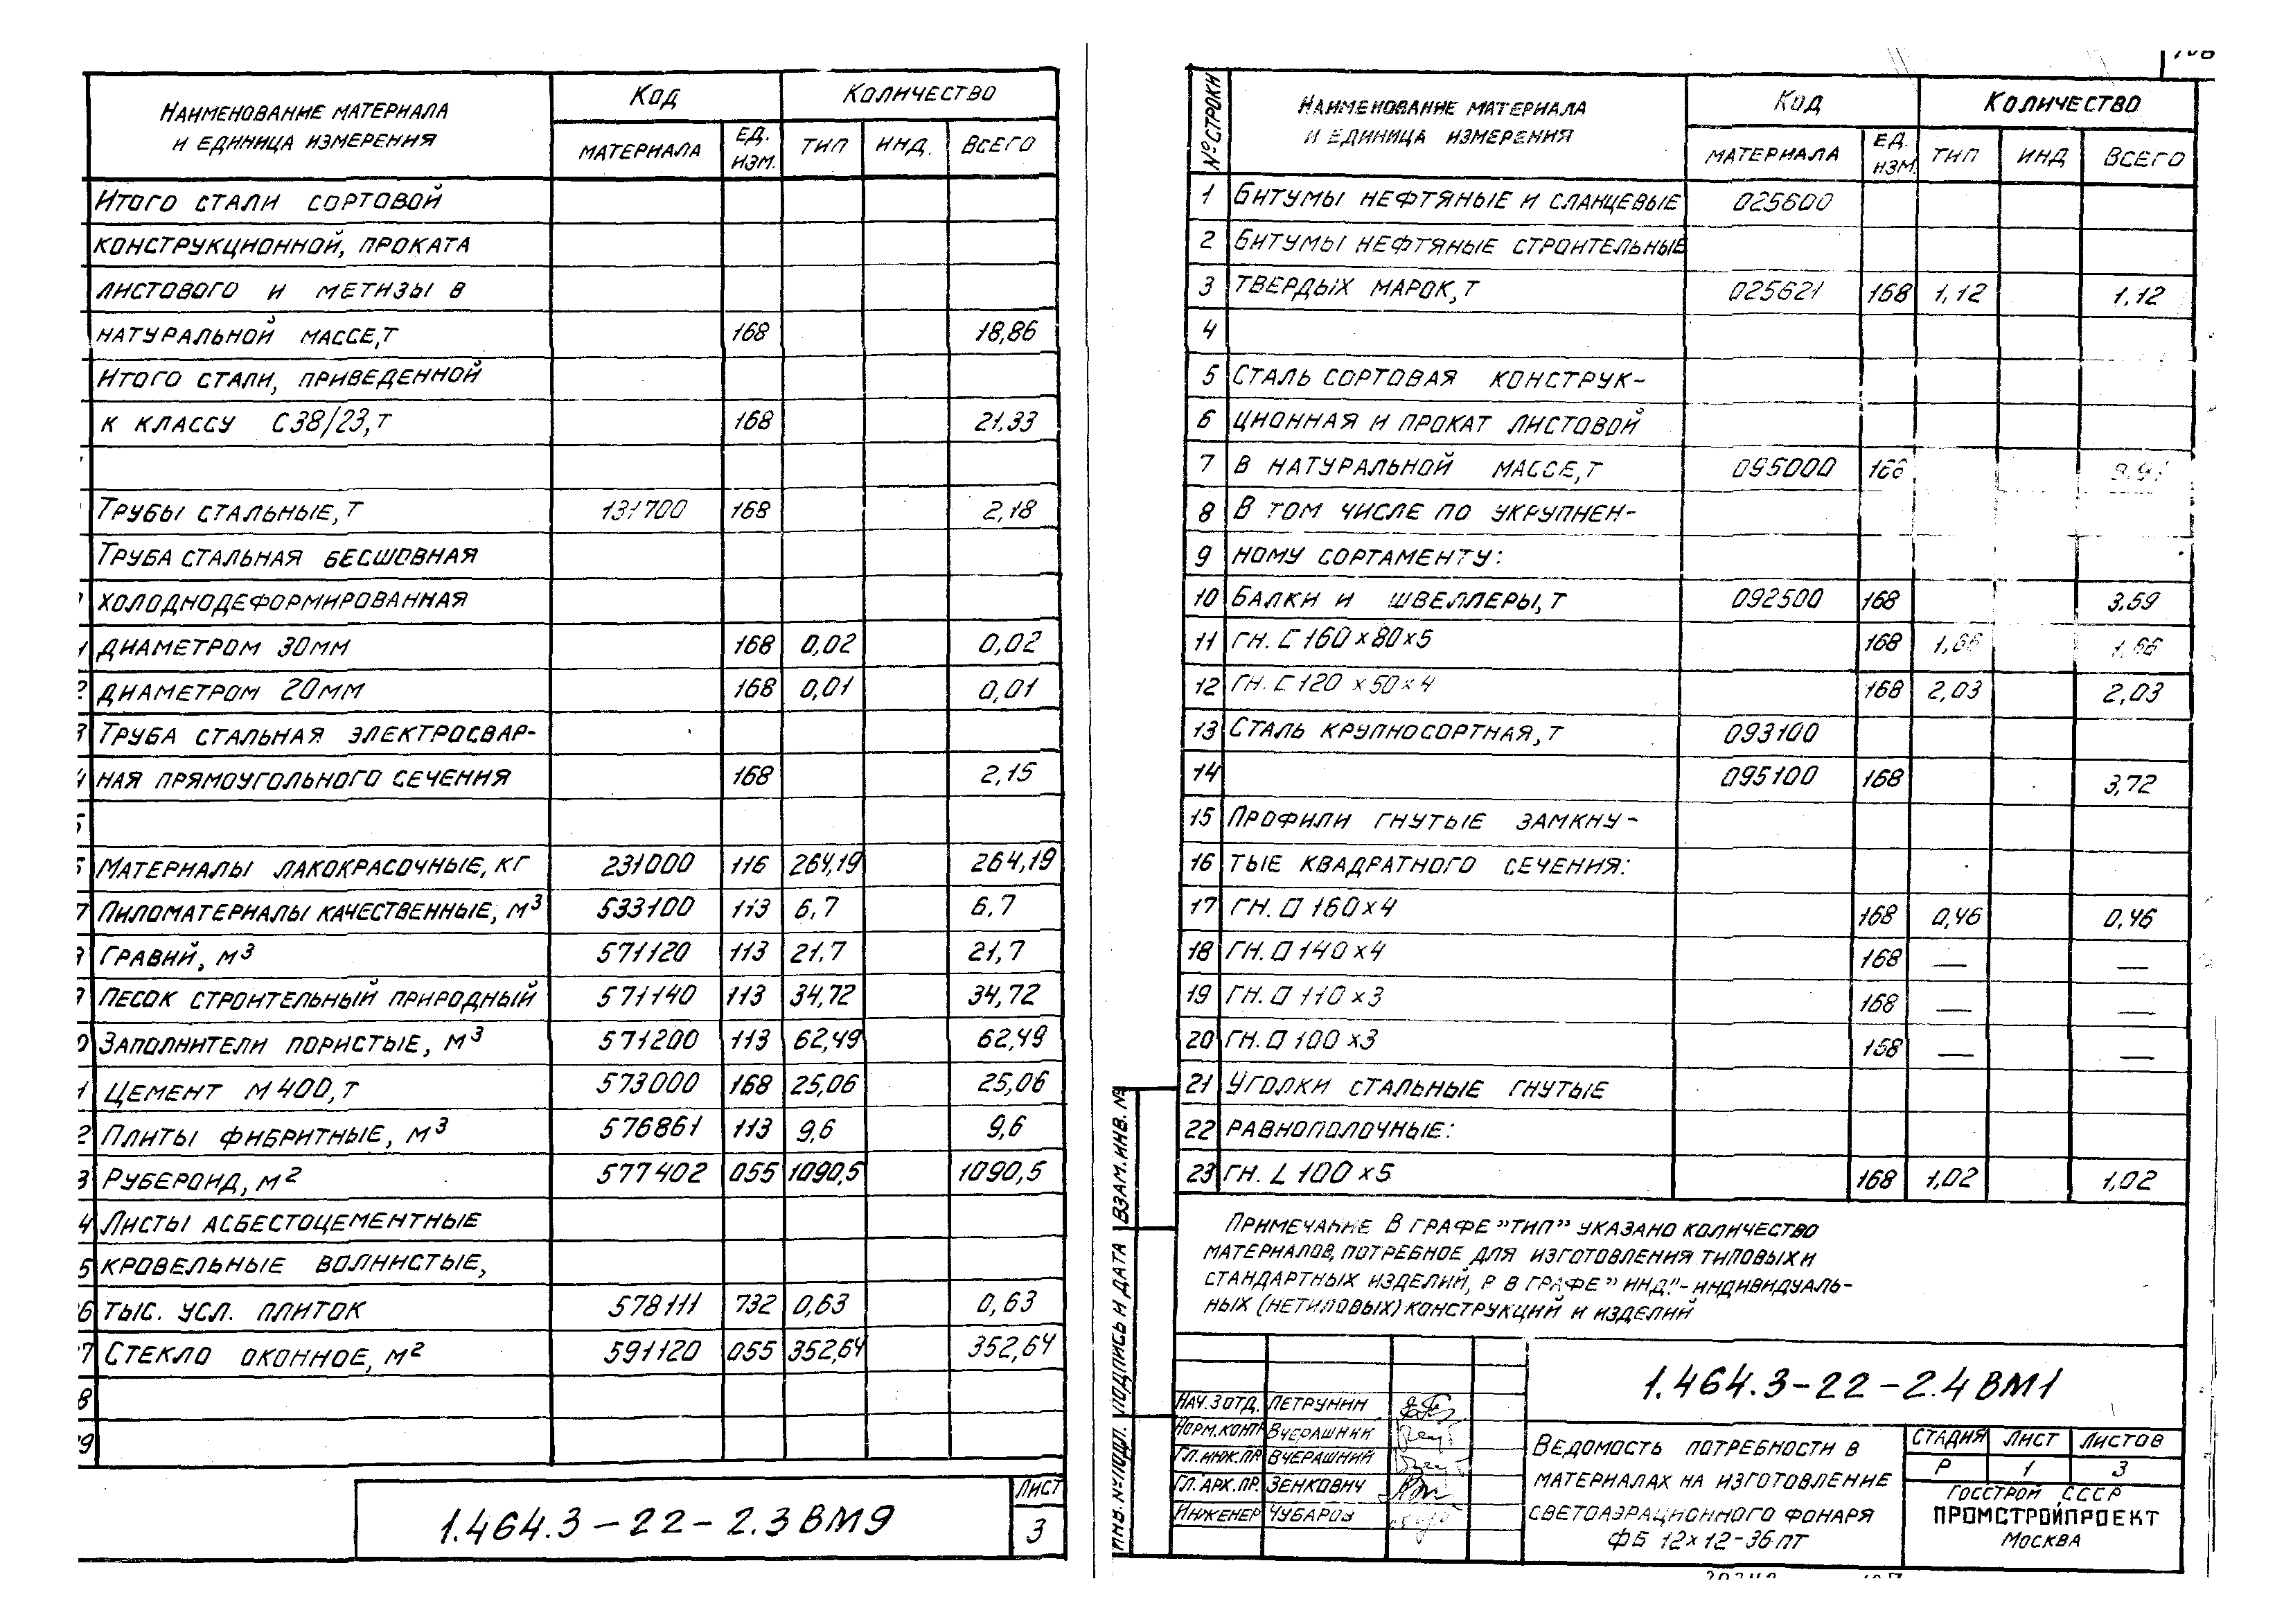 Наименование материала и единица измерения | Код | Количество
материала | ед. изм. | тип | инд. | всего
Итого стали сортовой
конструкционной, проката
листового и метизы в
натуральной массе, т 168 18,86
Итого стали, приведенной
к классу С38/23, т 168 21.33
Трубы стальные, т 131700 168 2,18
Труба стальная бесшовная
холоднодеформированная
диаметром 30мм 168 0,02 0,02
диаметром 20мм 168 0,01 0,01
Труба стальная электросвар-
ная прямоугольного сечения 168 2,15
Материалы лакокрасочные, кг 231000 116 264,19 264,19
Пиломатериалы качественные, м3 533100 113 6,7 6,7
Гравий, м3 571120 113 21.7 21,7
Песок строительный природный 571140 113 34,72 34,72
Заполнители пористые, м3 571200 113 62,49 62,49
Цемент М400, т 573000 168 25,06 25,06
Плиты фибритные, м3 576861 113 9,6 9,6
Рубероид, м2 577402 055 1090,5 1090,5
Листы асбестоцементные
кровельные волнистые,
тыс. усл. плиток 578111 732 0,63 0,63
Стекло оконное, м2 591120 055 352,64 352,64
1.464.3-22-2.3 ВМ9
Лист
3
№ строки | Наименование материала и единица измерения | Код | Количество
материала | ед. изм. | тип | инд | всего
1 Битумы нефтяные и сланцевые 025600
2 Битумы нефтяные строительные
3 твердых марок, т 025621 168 1,12 1,12
4
5 Сталь сортовая конструк-
6 ционная и прокат листовой
7 в натуральной массе, т 095000 168
8 В том числе по укрупнен-
9 ному сортаменту:
10 Балки и швеллеры, т 092500 168 3.59
11 гн. С 160×80×5 168
12 гн. С 120×50×4 168 2,03 2,03
13 Сталь крупносортная, т 093100
14 095100 168 3,72
15 Профили гнутые замкну-
16 тые квадратного сечения:
17 гн. □ 160×4 168 0,46 0,46
18 гн. □ 140×4 168 — —
19 гн. □ 110×3 168 — —
20 гн. □ 100×3 168 — —
21 Уголки стальные гнутые
22 равнополочные:
23 гн. L 100×5 168 1,02 1,02
Примечание В графе "тип" указано количество
материалов, потребное для изготовления типовых и
стандартных изделий, а в графе "инд." - индивидуаль-
ных (нетиповых) конструкций и изделий
Инв. № подл. Подпись и дата Взам. инв. №
1.464.3-22-2.4 ВМ1
Нач.3отд. Петрунин
Норм.контр Вчерашний
Гл.инж.пр Вчерашний
Гл.арх.пр. Зенкович
Инженер Чубаров
Ведомость потребности в
материалах на изготовление
светоаэрационного фонаря
ФБ 12×12-36пт
Стадия Лист Листов
Р 1 3
Госстрой СССР
ПРОМСТРОЙПРОЕКТ
Москва